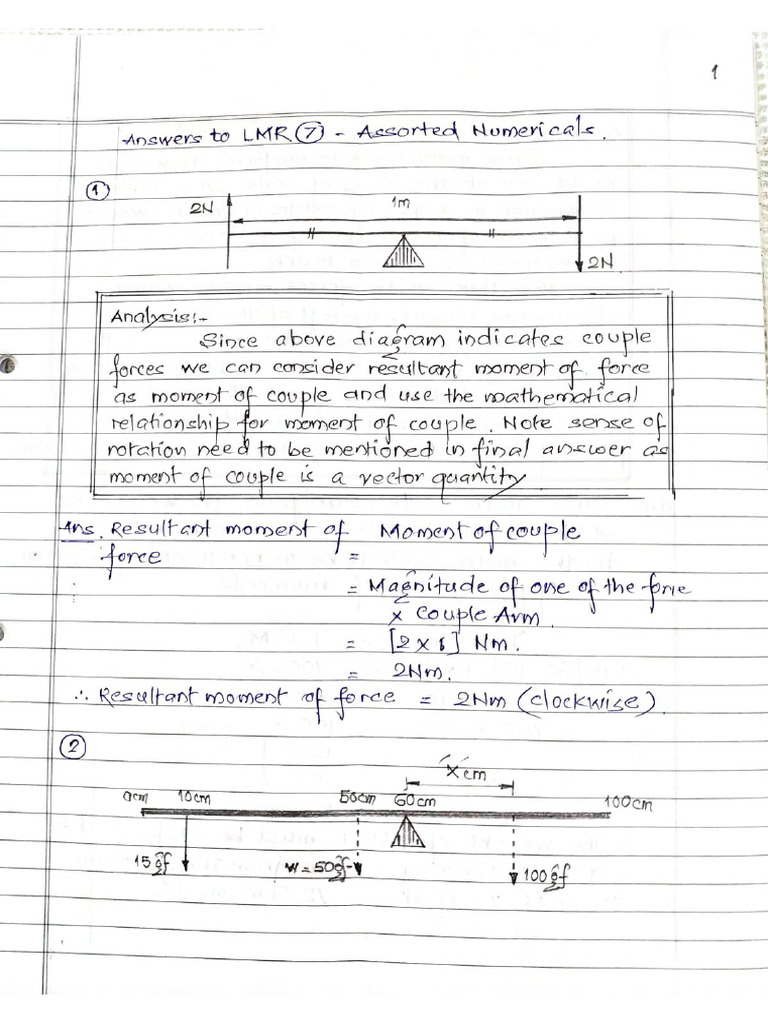 1
Answers to LMR ⑦ - Assorted Numericals.
①
2N 1m
2N
Analysis:-
Since above diagram indicates couple
forces we can consider resultant moment of force
as moment of couple and use the mathematical
relationship for moment of couple. Note sense of
rotation need to be mentioned in final answer as
moment of couple is a vector quantity
Ans. Resultant moment of = Moment of couple
force
= Magnitude of one of the force
x Couple Arm.
= [2 x 1] Nm.
= 2Nm.
∴ Resultant moment of force = 2Nm (clockwise).
②
x cm
0cm 10cm 50cm 60cm 100cm
15gf W = 50gf 100gf